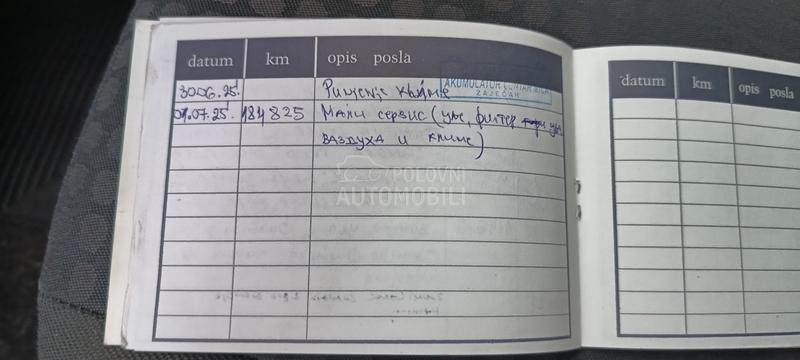 datum km opis posla
30.06.25. Пуњење климе
AKUMULATOR CENTAR
ZAJEČAR
01.07.25. 184825 Мали сервис (уље, филтер уља
ваздуха и климе)
POLOVNI
AUTOMOBILI
datum km opis posla